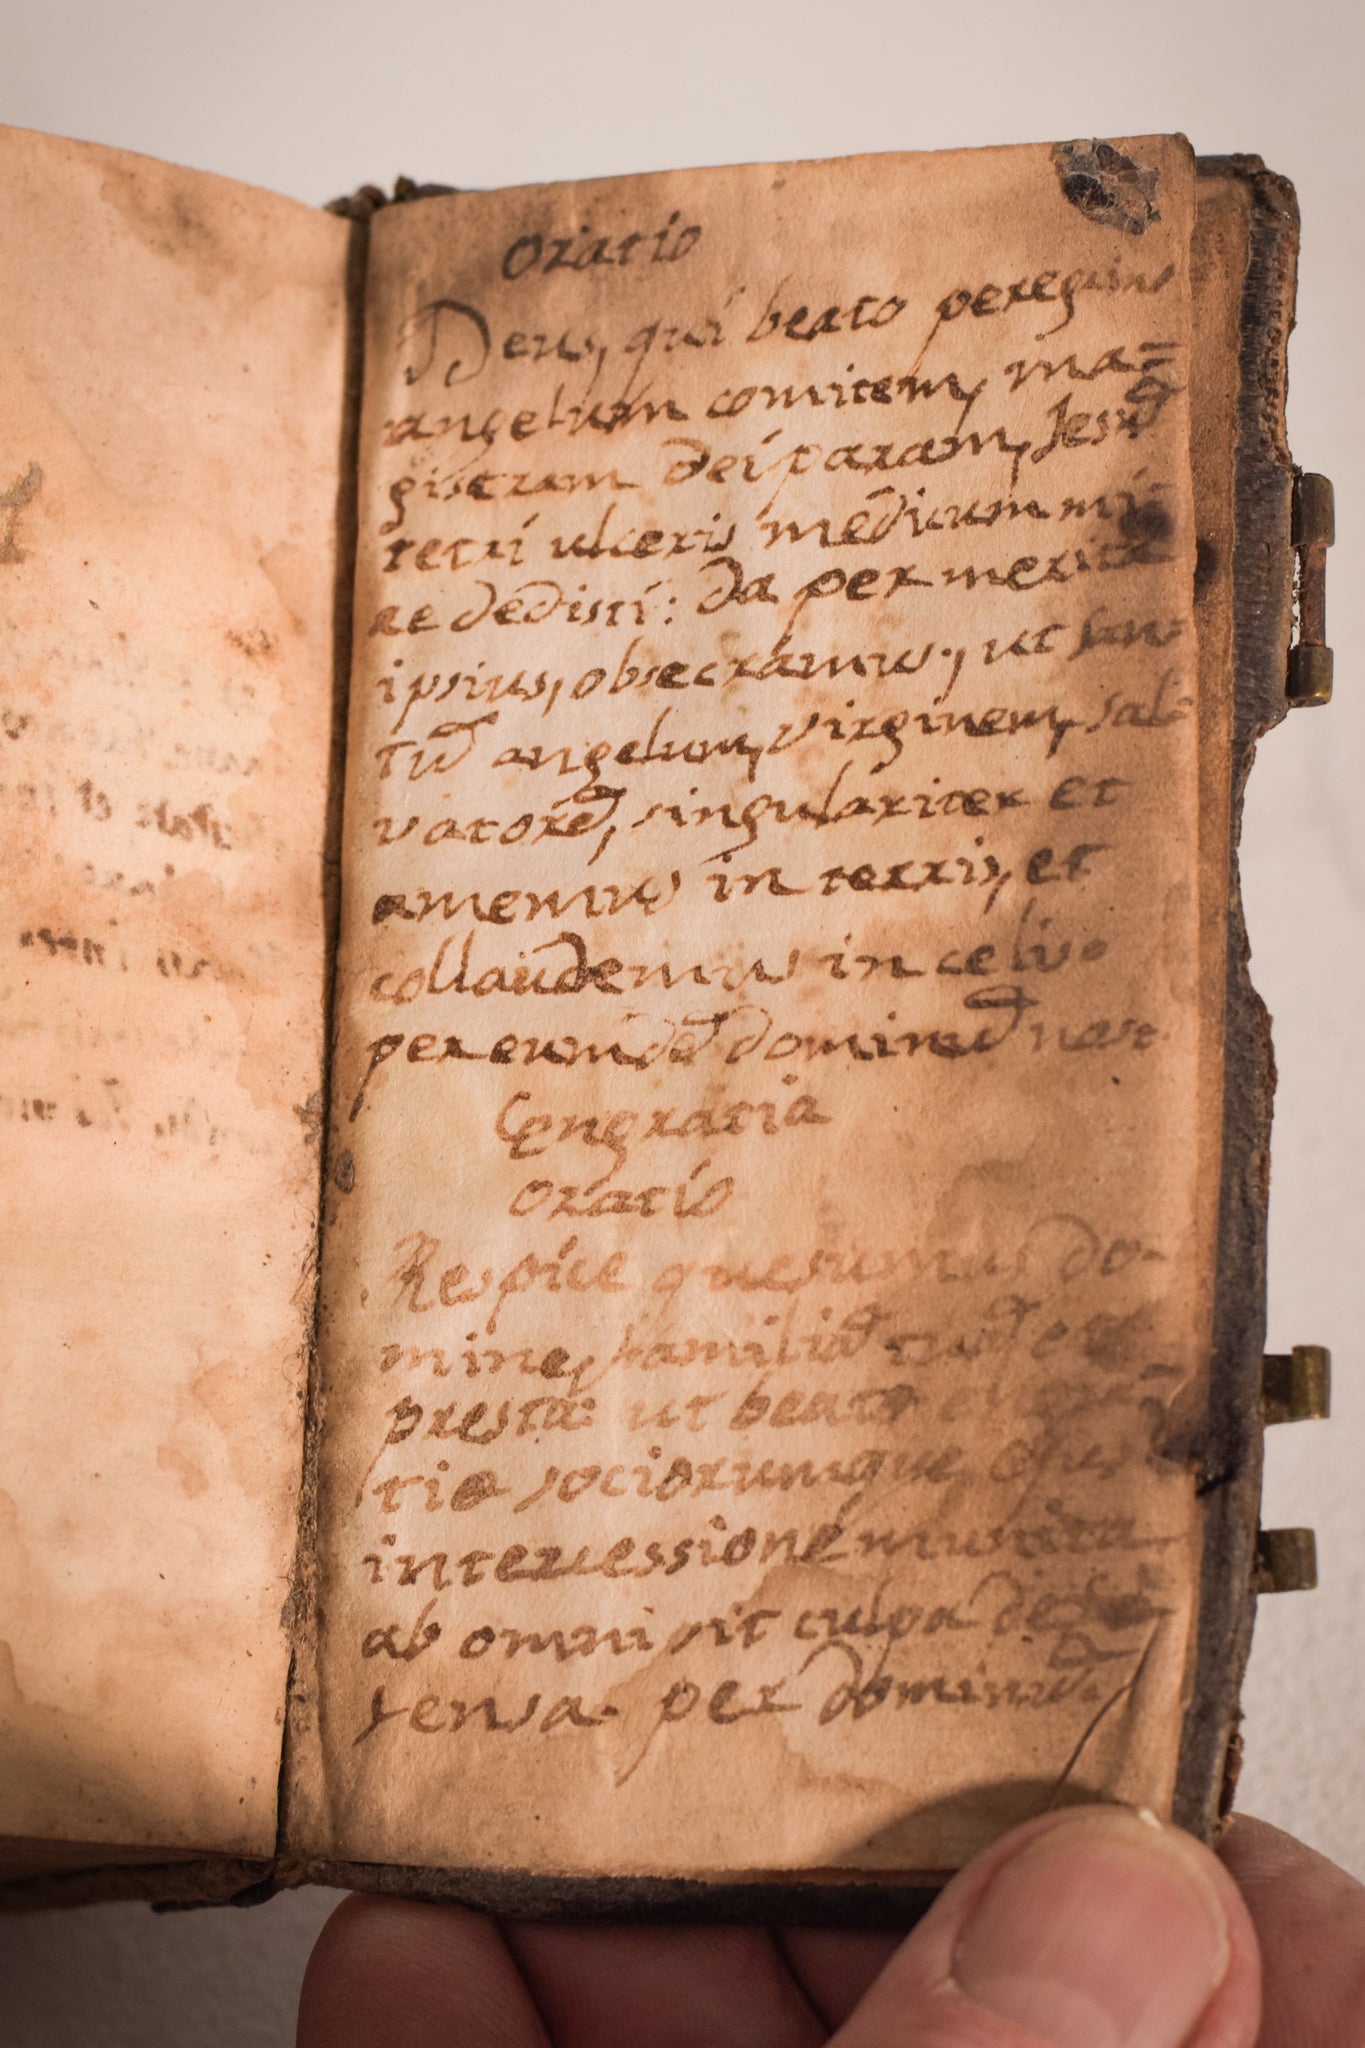 Oratio
Deus, qui beato peregrino
angelum comitem, ma=
gistram deiparam, Jesum̃
tetri ulceris medicum mi
re dedisti: da per merita
ipsius, obsecramus, ut san
tum̃ angelum, virginem, sal
vatorem̃, singulariter et
amemus in terris, et
collaudemus in celis.
per eumdem̃ dominum̃ nost
Engratia
Oratio
Respice quesumus do-
mine, familiam̃ tuam̃ et
presta: ut beate
tie sociorumque
intercessione munita
ab omni sit culpa
fensa. per dominum̃.